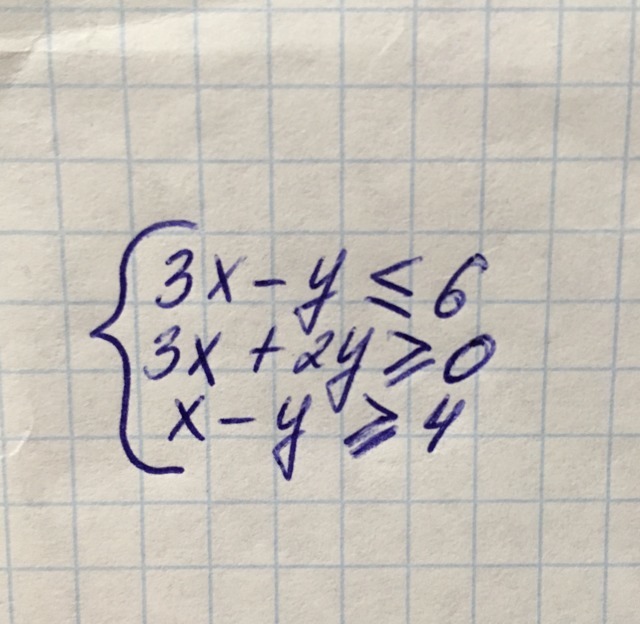 3x - y ≤ 6
3x + 2y ≥ 0
x - y ≥ 4